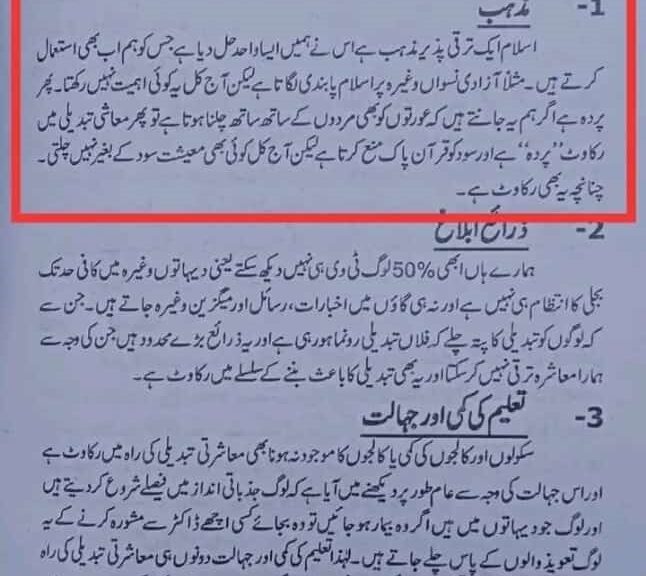 1- مذہب
اسلام ایک ترقی پذیر مذہب ہے اس نے ہمیں ایسا واحد حل دیا ہے جس کو ہم اب بھی استعمال
کرتے ہیں۔ مثلاً آزادی نسواں وغیرہ پر اسلام پابندی لگاتا ہے لیکن آج کل یہ کوئی اہمیت نہیں رکھتا۔ پھر
پردہ ہے اگر ہم یہ جانتے ہیں کہ عورتوں کو بھی مردوں کے ساتھ ساتھ چلنا ہوتا ہے تو پھر معاشی تبدیلی میں
رکاوٹ ”پردہ“ ہے اور سود کو قرآن پاک منع کرتا ہے لیکن آج کل کوئی بھی معیشت سود کے بغیر نہیں چلتی۔
چنانچہ یہ بھی رکاوٹ ہے۔
2- ذرائع ابلاغ
ہمارے ہاں ابھی 50% لوگ ٹی وی ہی نہیں دیکھ سکتے یعنی دیہاتوں وغیرہ میں کافی حد تک
بجلی کا انتظام ہی نہیں ہے اور نہ ہی گاؤں میں اخبارات، رسائل اور میگزین وغیرہ جاتے ہیں۔ جن سے
کہ لوگوں کو تبدیلی کا پتہ چلے کہ فلاں تبدیلی رونما ہو رہی ہے اور یہ ذرائع بڑے محدود ہیں جن کی وجہ سے
ہمارا معاشرہ ترقی نہیں کر سکتا اور یہ بھی تبدیلی کا باعث بننے کے سلسلے میں رکاوٹ ہے۔
3- تعلیم کی کمی اور جہالت
سکولوں اور کالجوں کی کمی یا کالجوں کا موجود نہ ہونا بھی معاشرتی تبدیلی کی راہ میں رکاوٹ ہے
اور اس جہالت کی وجہ سے عام طور پر دیکھنے میں آیا ہے کہ لوگ جذباتی انداز میں فیصلے شروع کر دیتے ہیں
اور لوگ جو دیہاتوں میں ہیں اگر وہ بیمار ہو جائیں تو وہ بجائے کسی اچھے ڈاکٹر سے مشورہ کرنے کے یہ
لوگ تعویذ والوں کے پاس چلے جاتے ہیں۔ لہٰذا تعلیم کی کمی اور جہالت دونوں ہی معاشرتی تبدیلی کی راہ